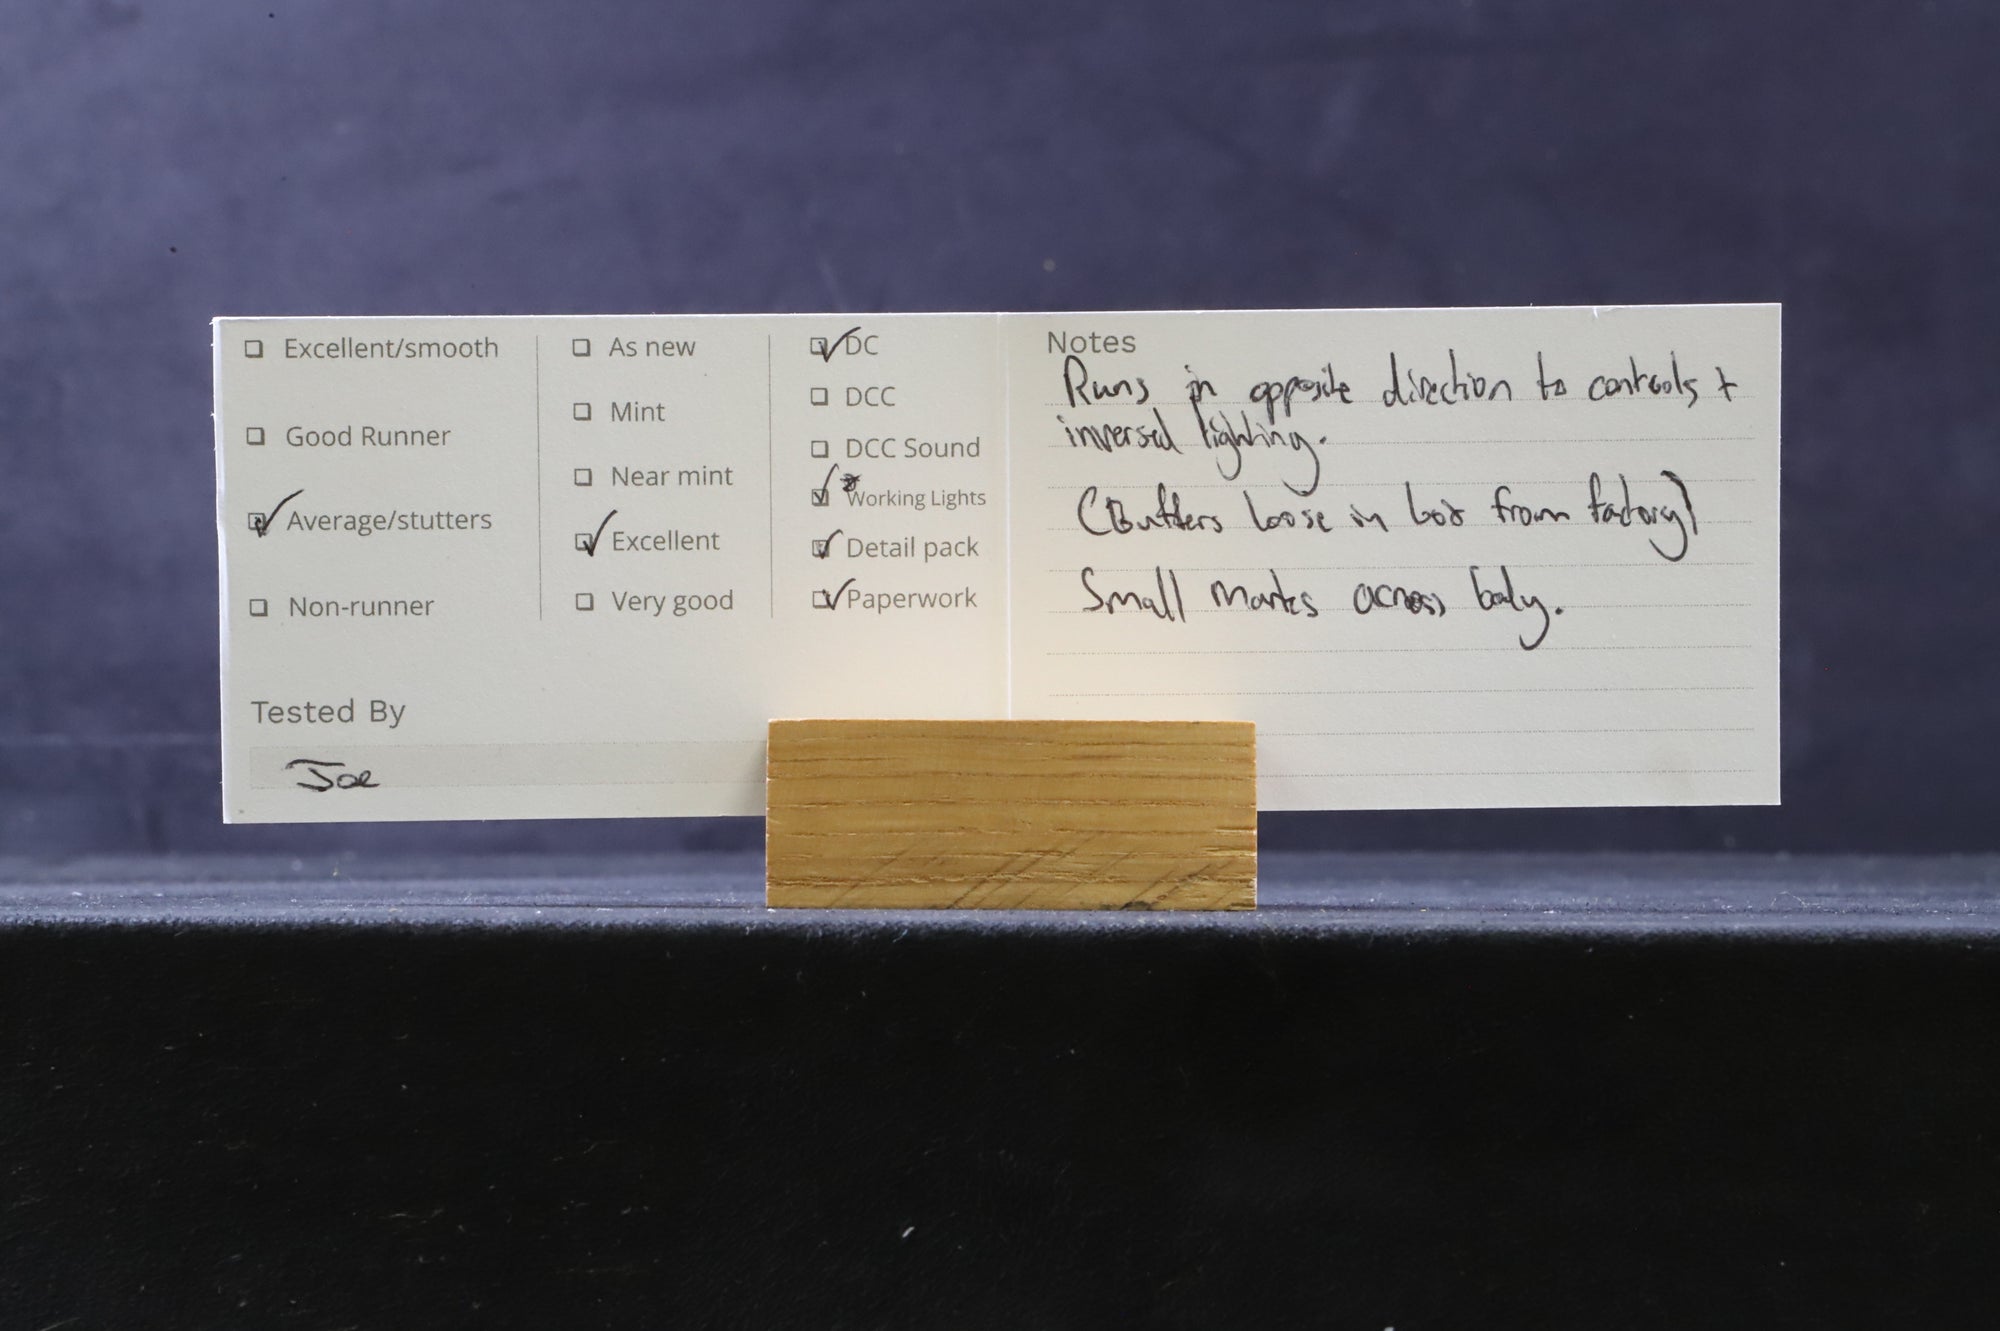 Excellent/smooth
Good Runner
Average/stutters
Non-runner
As new
Mint
Near mint
Excellent
Very good
DC
DCC
DCC Sound
Working Lights
Detail pack
Paperwork
Tested By
Joe
Notes
Runs in opposite direction to controls +
inversed lighting.
(Buffers loose in box from factory)
Small marks across body.